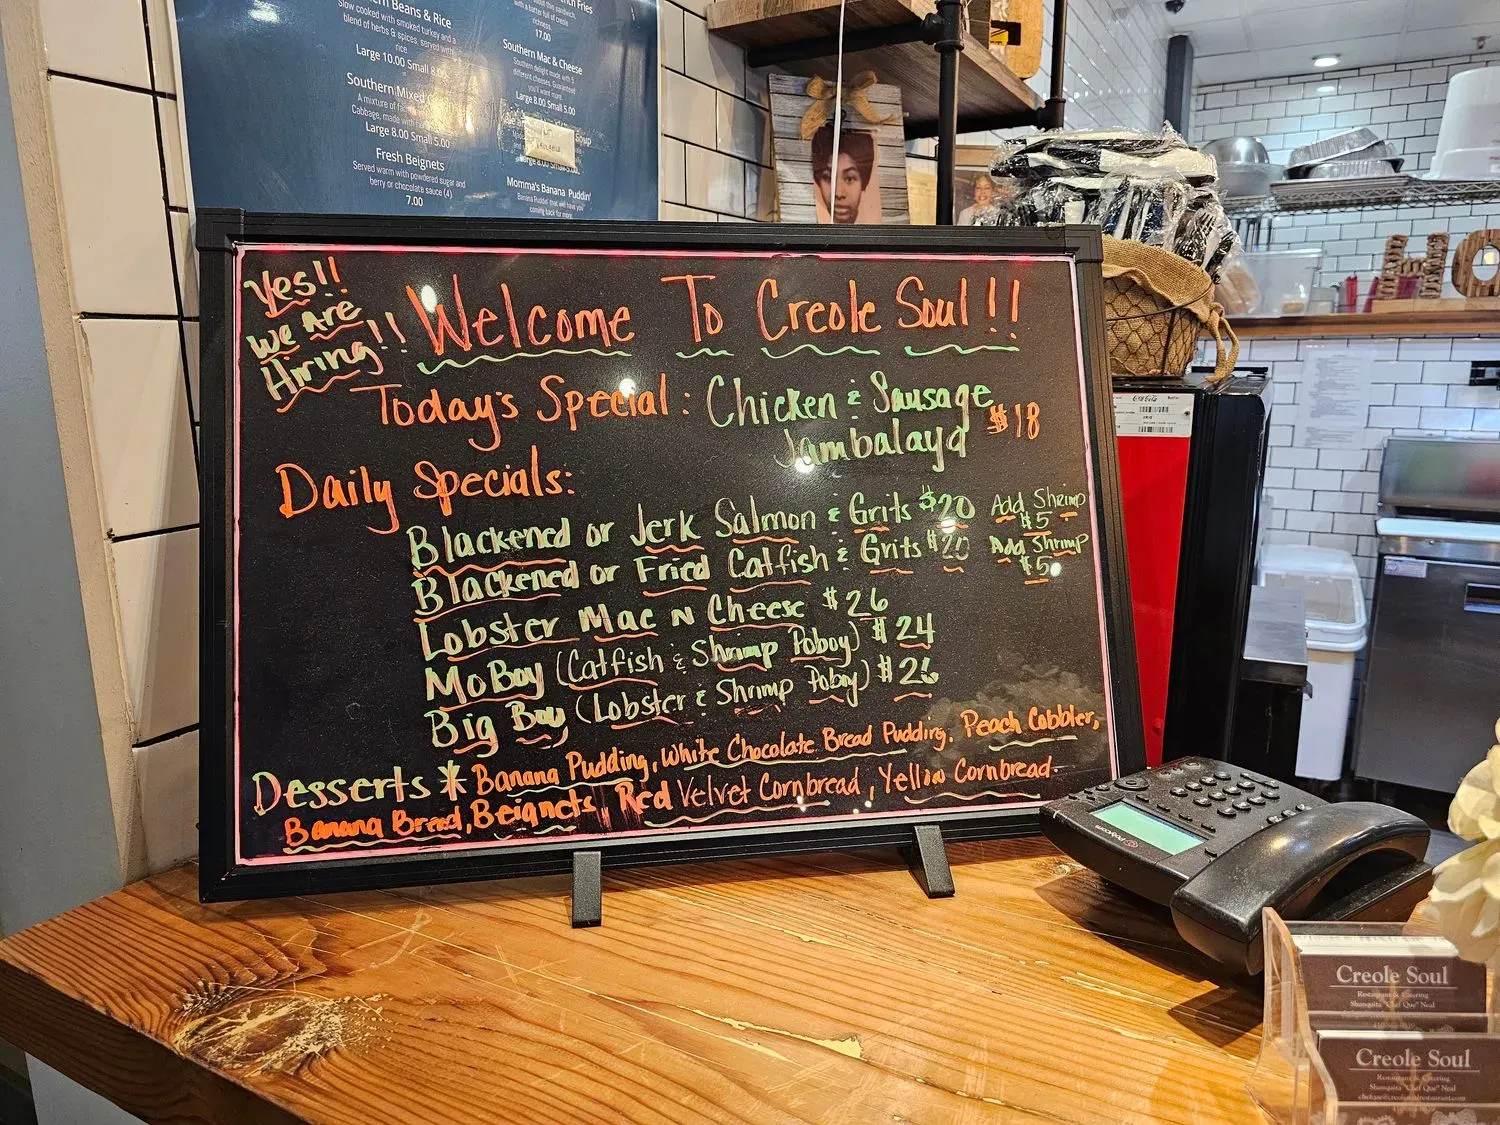 Beans & Rice
Slow cooked with smoked turkey and a
blend of herbs & spices, served with
rice
Large 10.00 Small 8.00
Southern Mixed
A mixture of
Cabbage, made with
Large 8.00 Small 5.00
Fresh Beignets
Served warm with powdered sugar and
berry or chocolate sauce (4)
7.00
Fries
17.00
Southern Mac & Cheese
Southern delight made with 5
different cheeses. Guaranteed
you'll want more.
Large 8.00 Small 5.00
Soup
Large 8.00 Small 5.00
Momma's Banana Puddin'
Banana Puddin' that will have you
coming back for more
Yes!!
We Are
Hiring!!
Welcome To Creole Soul!!
Today's Special: Chicken & Sausage
Jambalaya $18
Daily Specials:
Blackened or Jerk Salmon & Grits $20 Add Shrimp
$5
Blackened or Fried Catfish & Grits $20 Add Shrimp
$5
Lobster Mac N Cheese $26
MoBoy (Catfish & Shrimp Poboy) $24
Big Boy (Lobster & Shrimp Poboy) $26
Desserts * Banana Pudding, White Chocolate Bread Pudding, Peach Cobbler,
Banana Bread, Beignets, Red Velvet Cornbread, Yellow Cornbread.
Coca-Cola
HO
Polycom
Creole Soul
Restaurant & Catering
Shanquita "Chef Que" Neal
Creole Soul
Restaurant & Catering
Shanquita "Chef Que" Neal